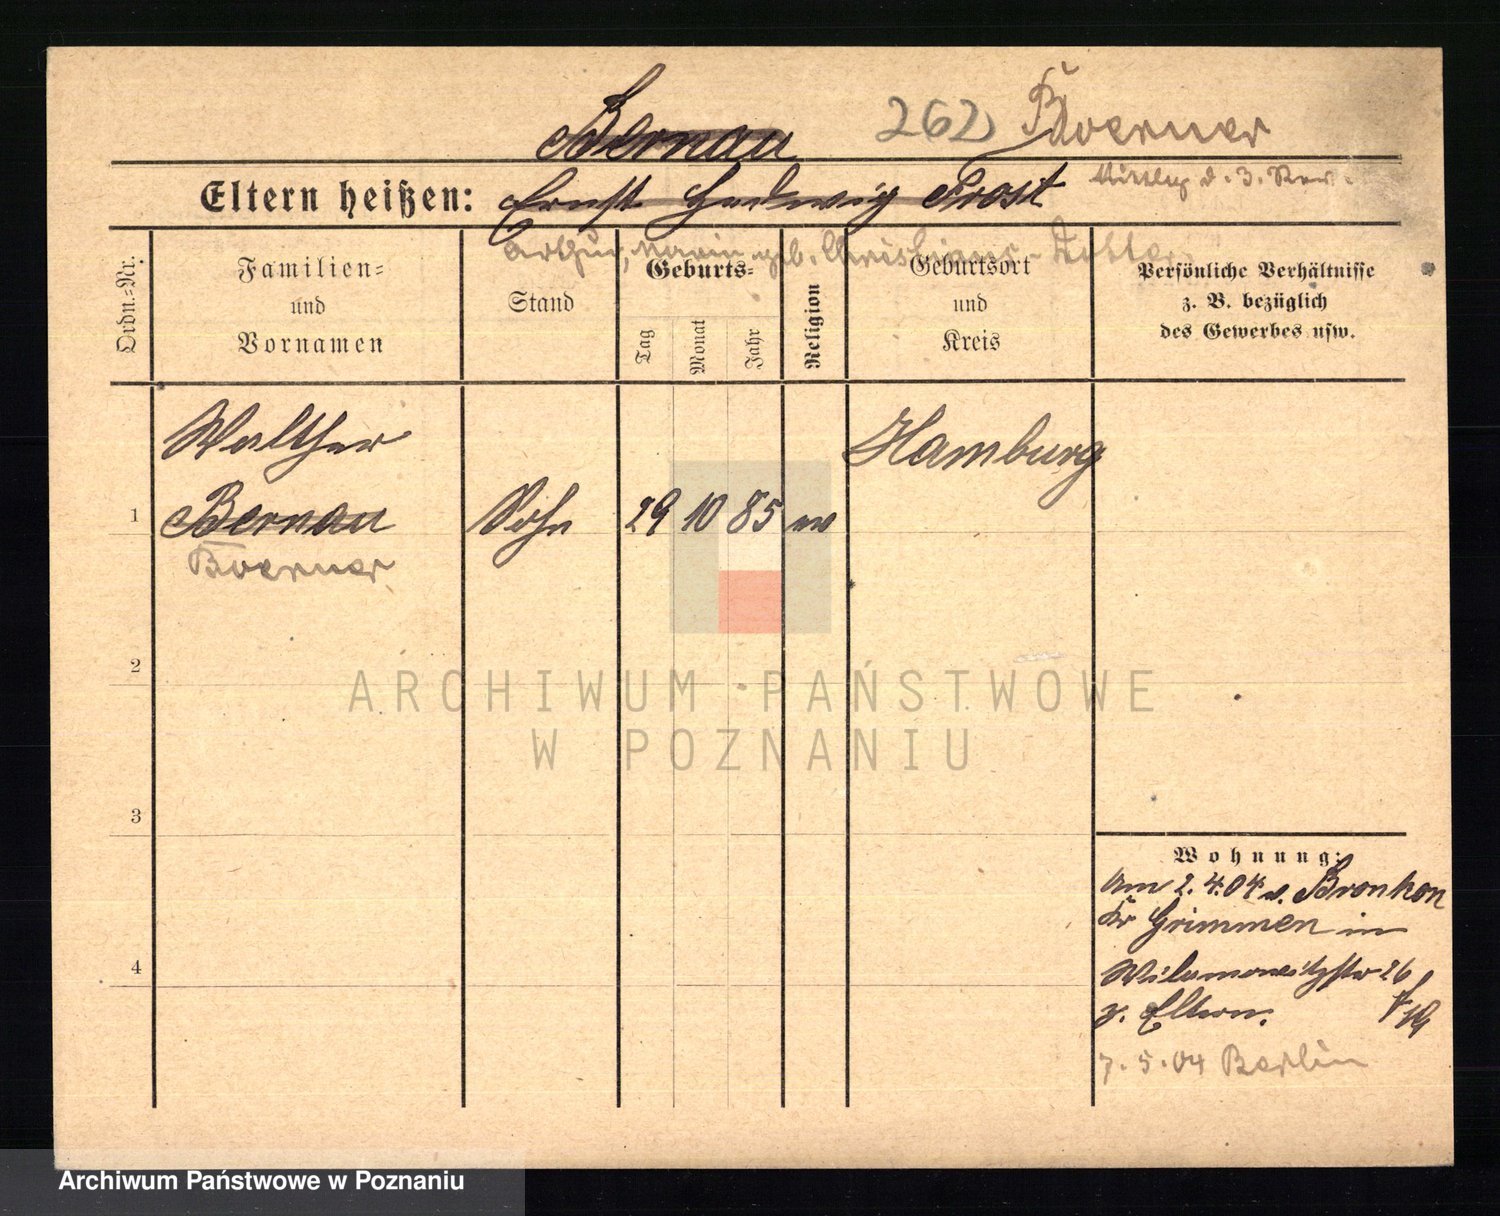 Bernau 262 Boerner
Eltern heißen: Ernst Hedwig Prost
Arthur, Marie geb.
Ordn.-Nr.
Familien-
und
Vornamen
Stand
Geburts-
Tag
Monat
Jahr
Religion
Geburtsort
und
Kreis
Persönliche Verhältnisse
z. B. bezüglich
des Gewerbes usw.
Walther
Hamburg
1 Bernau Sohn 29 10 85 ev
Boerner
2
ARCHIWUM PAŃSTWOWE
W POZNANIU
3
Wohnung:
am 2.4.04 v. Bronkow
Kr Grimmen in
Wilamowitzstr 26
z. Eltern.
4
7.5.04 Berlin
Archiwum Państwowe w Poznaniu